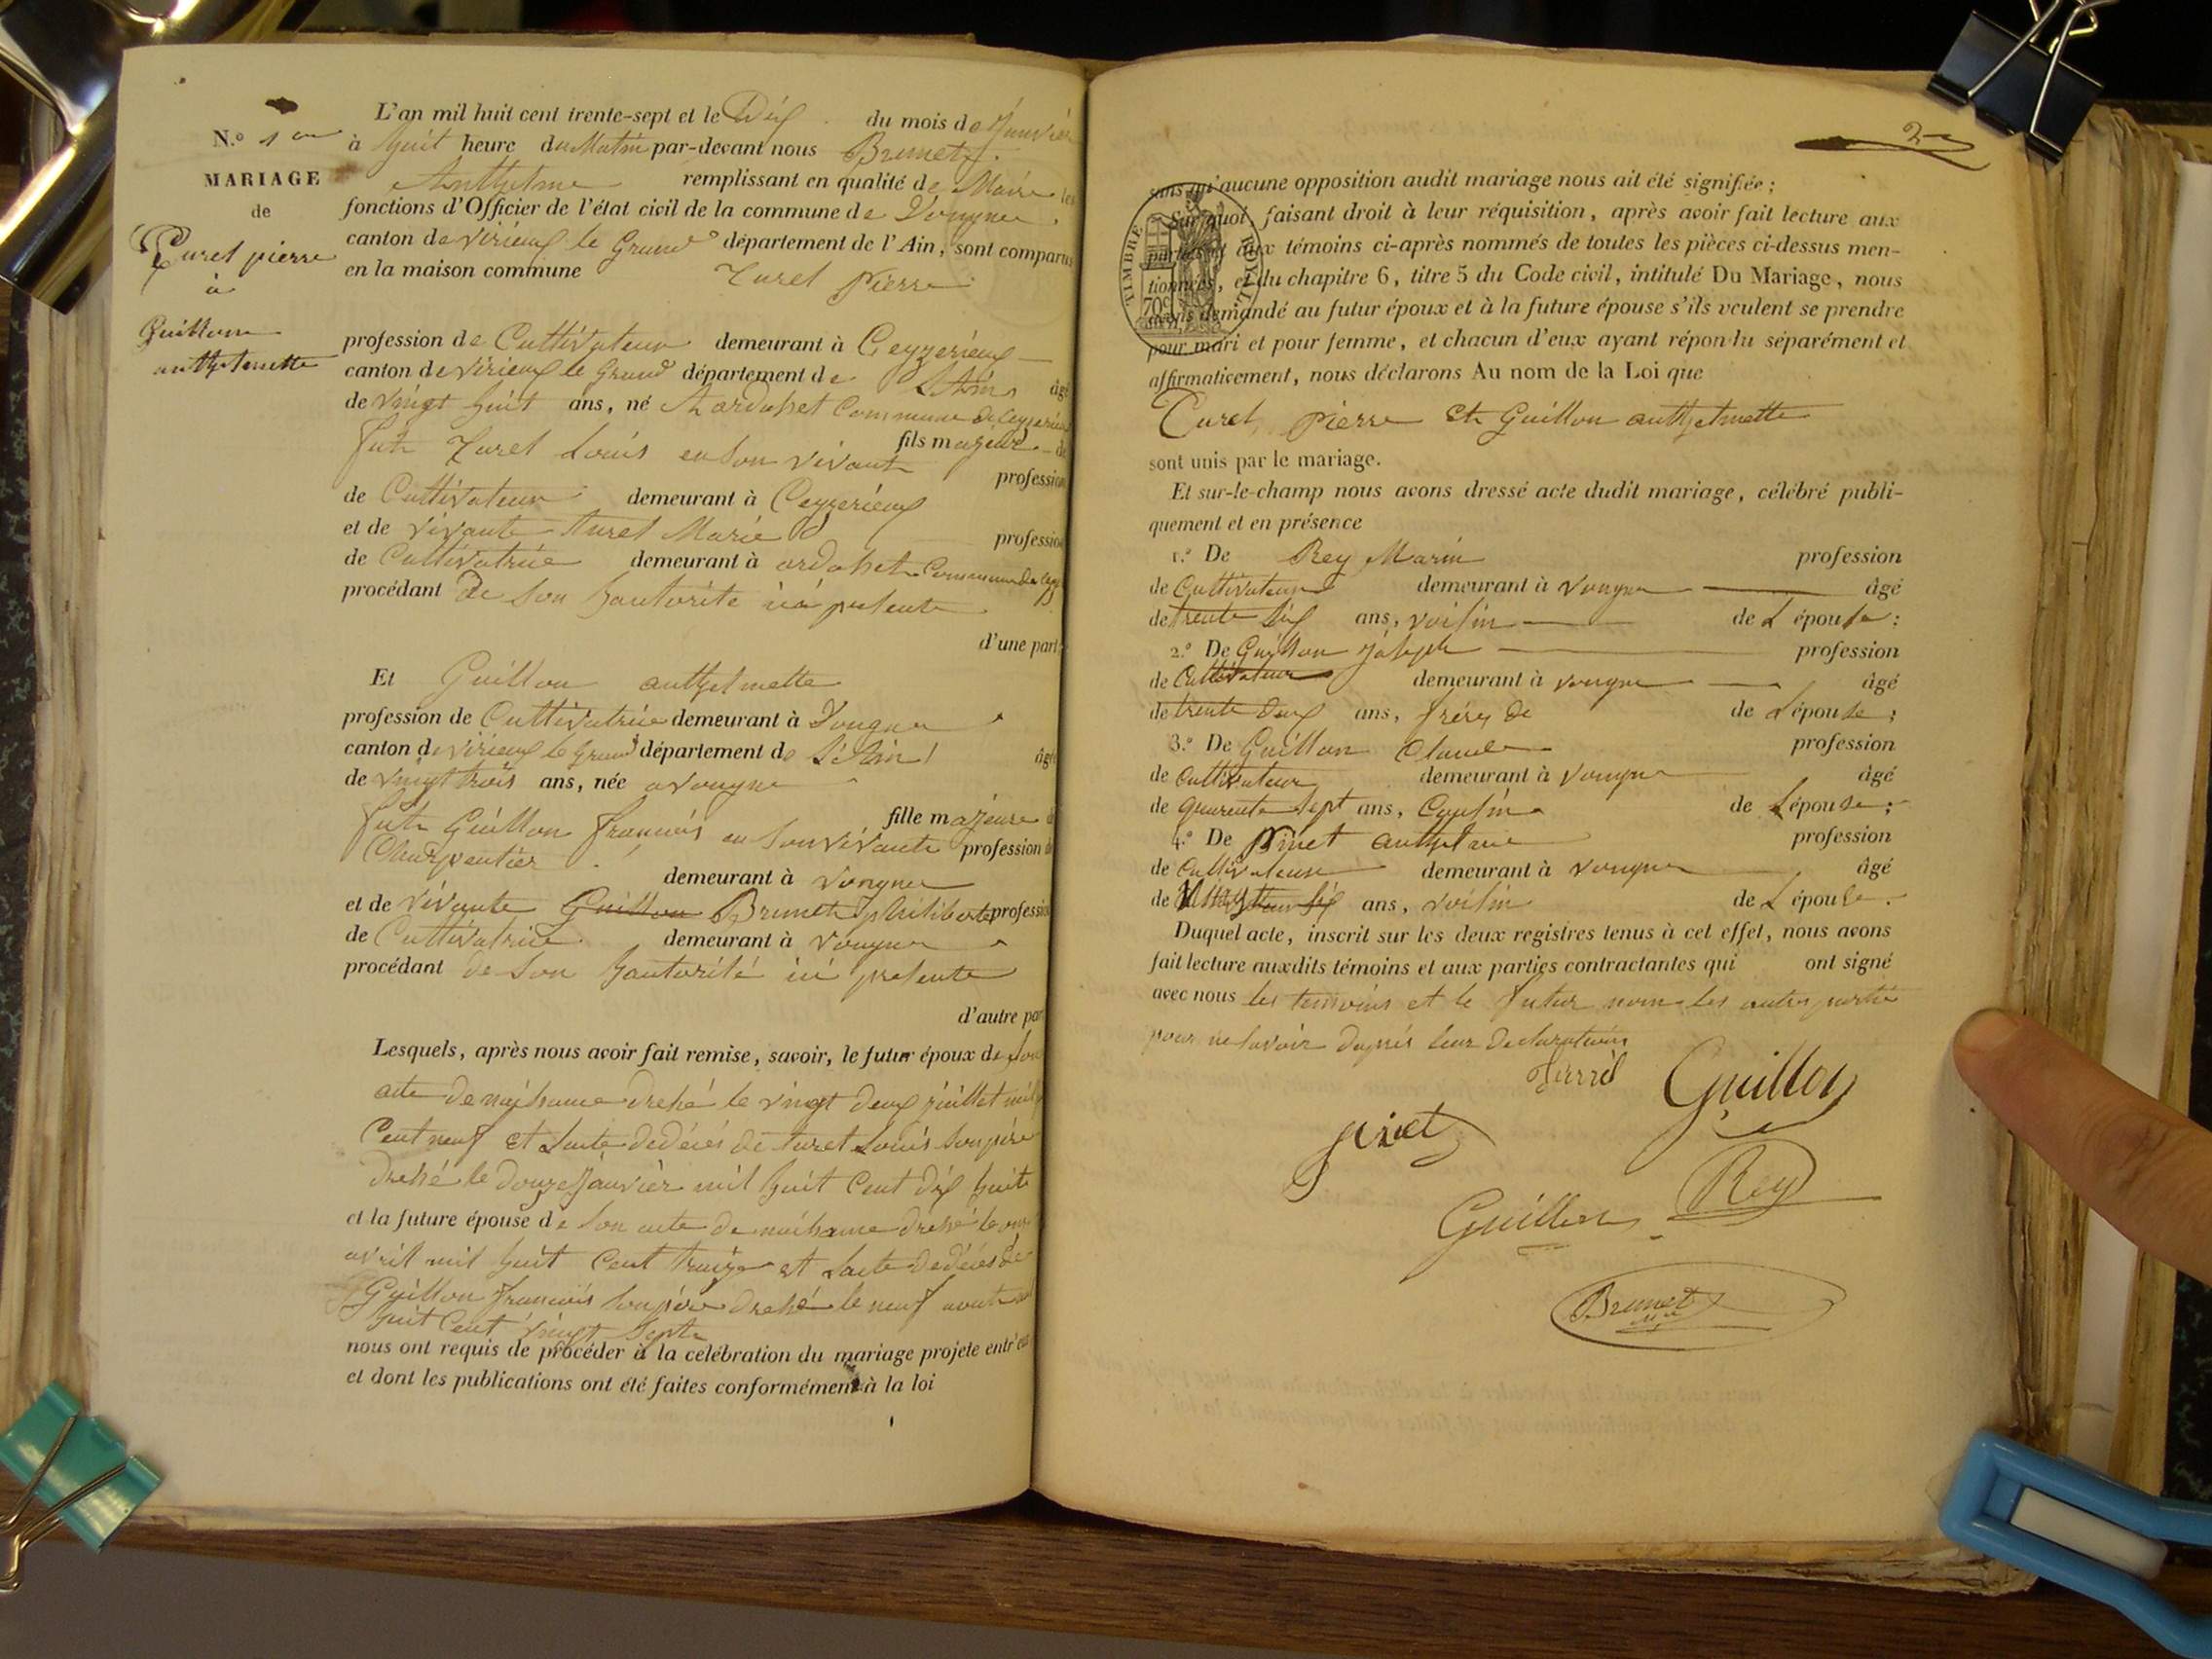 N.º 1er
MARIAGE
de
Turel pierre
à
Guillon
anthelmette
L'an mil huit cent trente-sept et le Dix du mois de Janvier
à huit heure du Matin par-devant nous Brunet
Anthelme remplissant en qualité de Maire les
fonctions d'Officier de l'état civil de la commune de Vongne
canton de virieux le Grand département de l'Ain, sont comparus
en la maison commune Turel Pierre
profession de Cultivateur demeurant à Ceyzerieux
canton de virieux le Grand département de L'Ain âgé
de vingt huit ans, né à ardosset Commune de Ceyzerieux
fils majeur de
futu Turel Louis en son vivant profession
de Cultivateur demeurant à Ceyzerieux
et de vivante turel Marie profession
de Cultivatrice demeurant à ardosset Commune de
procédant de son hautorité ici presente
d'une part
Et Guillon anthelmette
profession de Cultivatrice demeurant à Vongne
canton de virieux le Grand département de L'Ain âgée
de vingt trois ans, née a vongne
fille majeure
futu Guillon francois en son vivante profession de
Charpentier demeurant à vongne
et de vivante Guillon Brunet philiberte profession
de Cultivatrice demeurant à vongne
procédant de son hautorité ici presente
d'autre part
Lesquels, après nous avoir fait remise, savoir, le futur époux de son
acte de naissance dressé le vingt deux juillet mil
Cent neuf et lacte dedécés de turel Louis son père
dressé le douze Janvier mil huit Cent dix huit
et la future épouse de son acte de naissance dressé le
avril mil huit Cent treize et lacte dedécés de
Guillon francois son père dressé le neuf aout
huit Cent vingt Sept
nous ont requis de procéder à la celébration du mariage projete entr'eux
et dont les publications ont été faites conformément à la loi
2
sans qu'aucune opposition audit mariage nous ait été signifiée;
Sur quoi, faisant droit à leur réquisition, après avoir fait lecture aux
parties et aux témoins ci-après nommés de toutes les pièces ci-dessus men-
tionnées, et du chapitre 6, titre 5 du Code civil, intitulé Du Mariage, nous
avons demandé au futur époux et à la future épouse s'ils veulent se prendre
pour mari et pour femme, et chacun d'eux ayant répondu séparément et
affirmativement, nous déclarons Au nom de la Loi que
TIMBRE ROYAL
70c
Turel pierre et Guillon anthelmette
sont unis par le mariage.
Et sur-le-champ nous avons dressé acte dudit mariage, célébré publi-
quement et en présence
1.º De Rey Marin profession
de Cultivateur demeurant à vongne âgé
de trente Six ans, voisin de L'épouse:
2.º De Guillon joseph profession
de Cultivateur demeurant à vongne âgé
de trente deux ans, frére de de L'épouse;
3.º De Guillon Claude profession
de Cultivateur demeurant à vongne âgé
de quarente sept ans, Cousin de L'épouse;
4.º De Pinet anthelme profession
de Cultivateur demeurant à vongne âgé
de ans, voisin de L'épouse.
Duquel acte, inscrit sur les deux registres tenus à cet effet, nous avons
fait lecture auxdits témoins et aux parties contractantes qui ont signé
avec nous les temoins et le futur nom les autres partie
pour ne savoir dapris leur declaration
Guillon
pinet
Rey
Guillon
Brunet